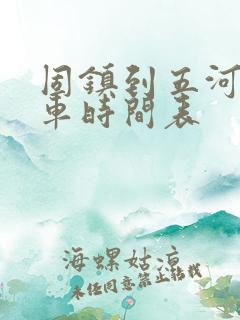 固鎮到五河
車時間表
海螺姑涼
未经同意禁止转载